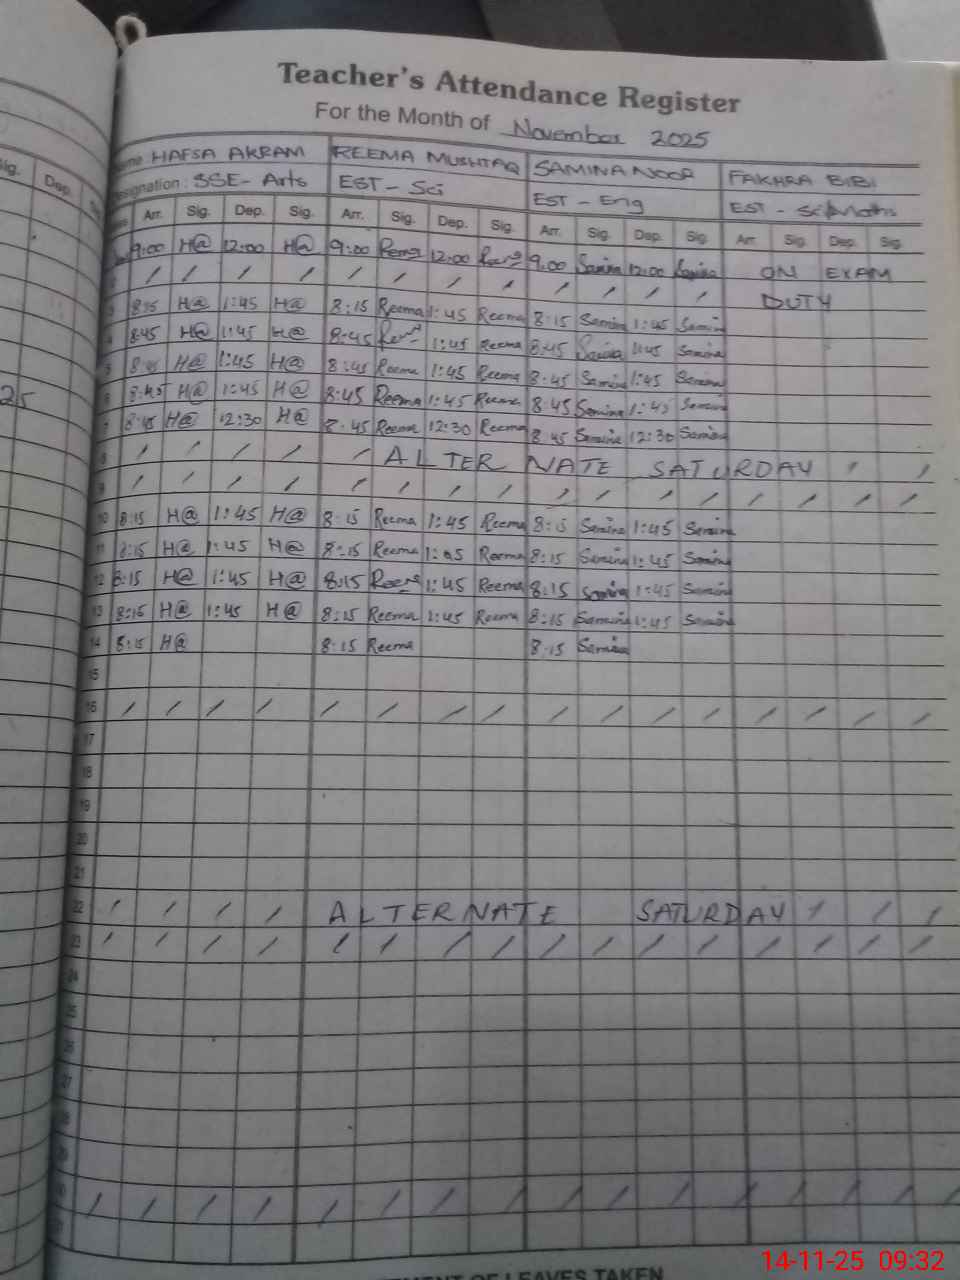 Teacher's Attendance Register
For the Month of November 2025
ig. Dep.
HAFSA AKRAM REEMA MUSHTAQ SAMINA NOOR FAKHRA BIBI
SSE- Arts EST - Sci EST - Eng EST -
Arr. Sig. Dep. Sig. Arr. Sig. Dep. Sig. Arr. Sig. Dep. Sig. Arr. Sig. Dep. Sig.
9:00 H@ 12:00 H@ 9:00 Reema 12:00 Reema 9:00 Samina 12:00 Samina ON EXAM
/ / / / / / / / / / / / DUTY
3 8:15 H@ 1:45 H@ 8:15 Reema 1:45 Reema 8:15 Samina 1:45 Samina
4 8:45 H@ 1:45 H@ 8:45 Reema 1:45 Reema 8:45 Samina 1:45 Samina
5 8:45 H@ 1:45 H@ 8:45 Reema 1:45 Reema 8:45 Samina 1:45 Samina
6 8:45 H@ 1:45 H@ 8:45 Reema 1:45 Reema 8:45 Samina 1:45 Samina
7 8:45 H@ 12:30 H@ 8:45 Reema 12:30 Reema 8:45 Samina 12:30 Samina
25
8 / / / / / ALTERNATE SATURDAY / /
9 / / / / / / / / / / / / / / / /
10 8:15 H@ 1:45 H@ 8:15 Reema 1:45 Reema 8:15 Samina 1:45 Samina
11 8:15 H@ 1:45 H@ 8:15 Reema 1:45 Reema 8:15 Samina 1:45 Samina
12 8:15 H@ 1:45 H@ 8:15 Reema 1:45 Reema 8:15 Samina 1:45 Samina
13 8:15 H@ 1:45 H@ 8:15 Reema 1:45 Reema 8:15 Samina 1:45 Samina
14 8:15 H@ 8:15 Reema 8:15 Samina
15
16 / / / / / / / / / / / / / / / /
17
18
19
20
21
22 / / / / ALTERNATE SATURDAY / / /
23 / / / / / / / / / / / / / / / /
24
25
26
27
28
29
30 / / / / / / / / / / / / / / / /
31
OF LEAVES TAKEN
14-11-25 09:32